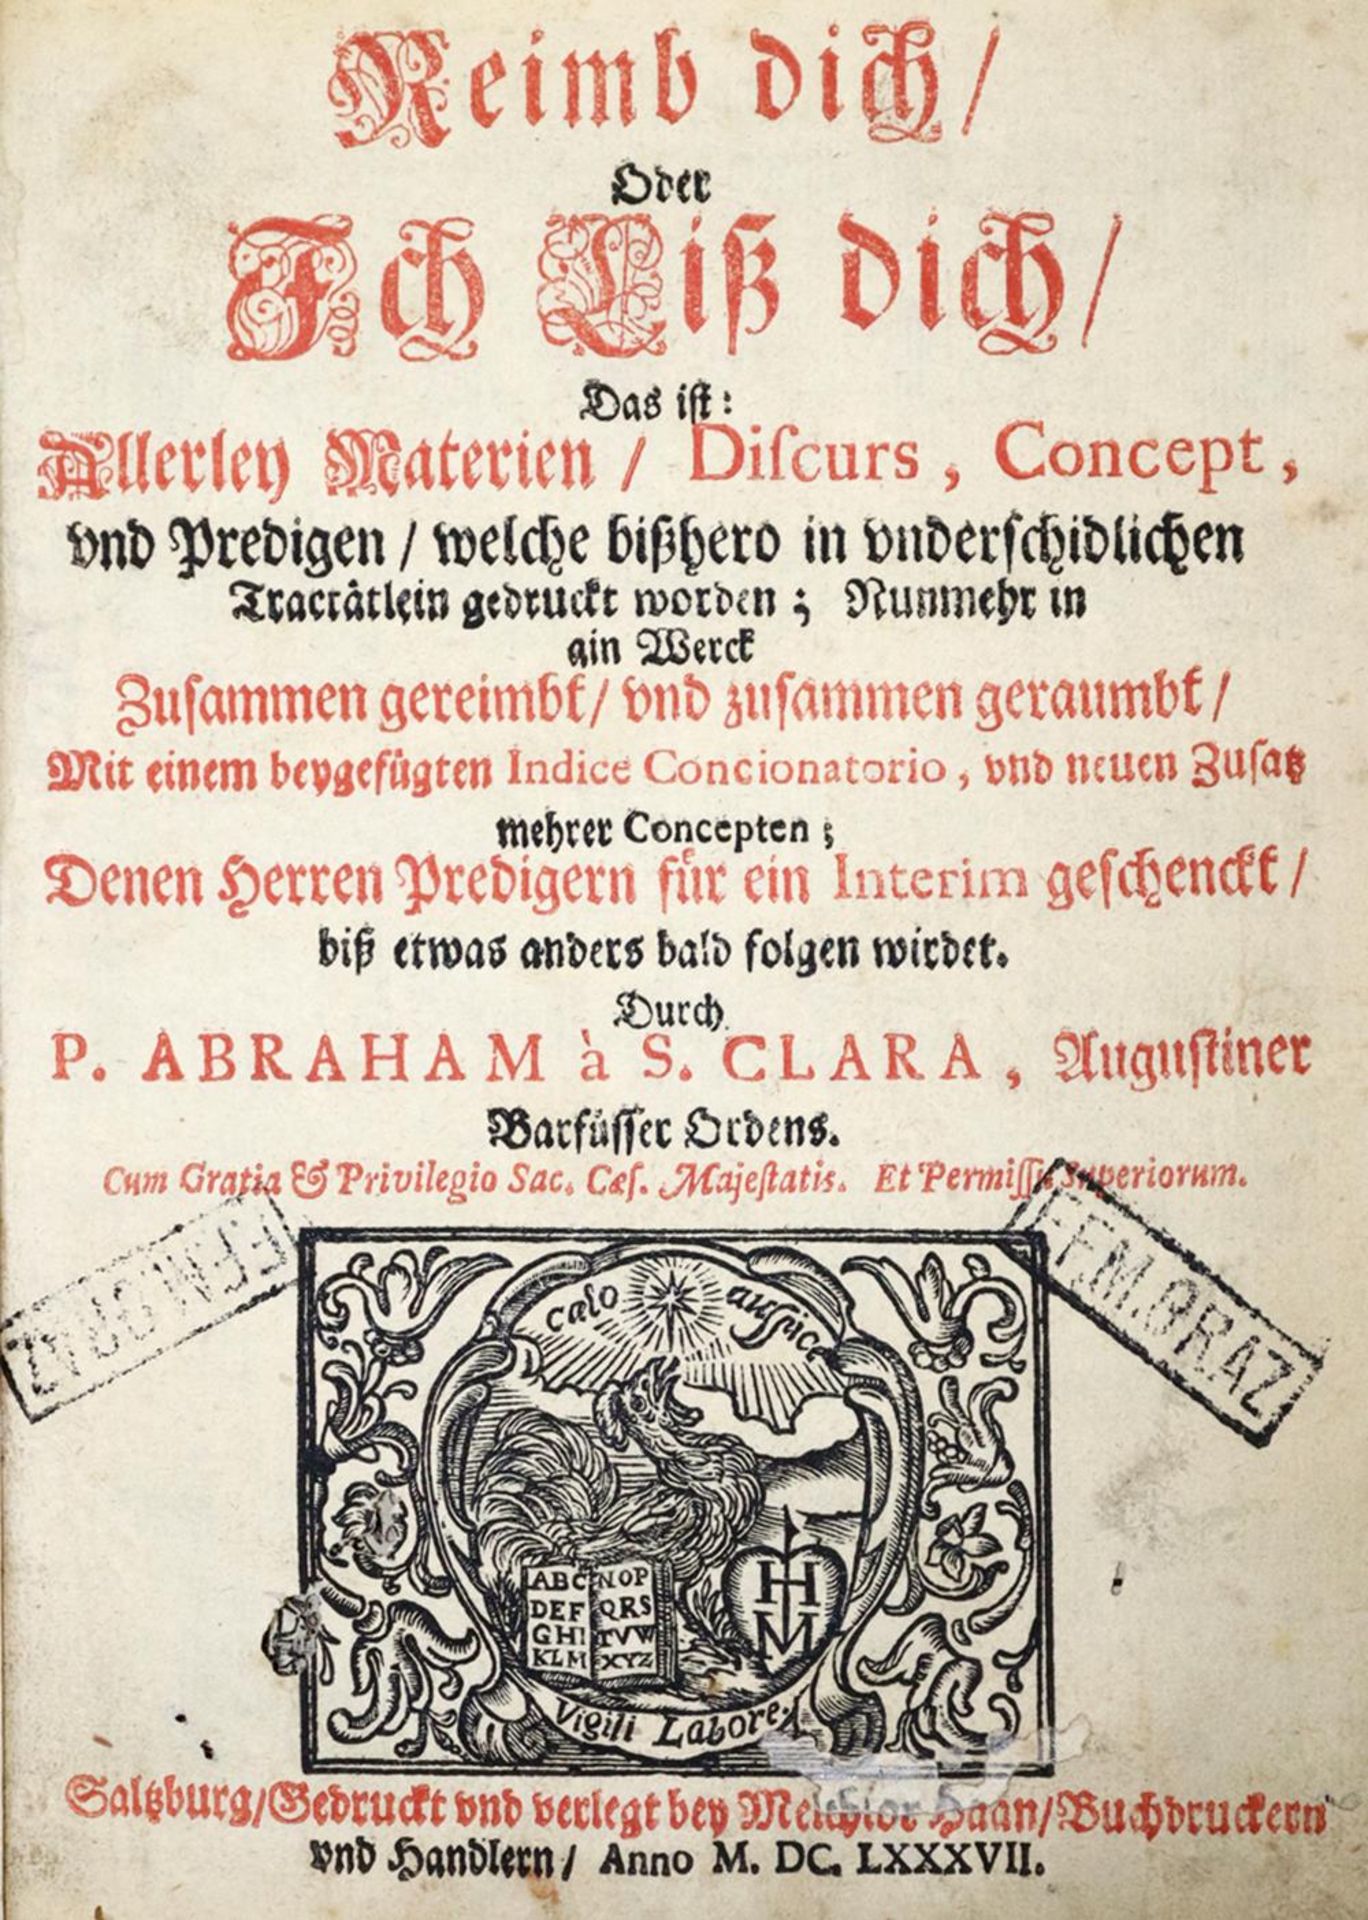 Reimb dich /
Oder
Ich Liß dich /
Das ist:
Allerley Materien / Discurs, Concept,
vnd Predigen / welche bißhero in vnderschidlichen
Tractätlein gedruckt worden; Nunmehr in
ain Werck
Zusammen gereimbt / vnd zusammen geraumbt /
Mit einem beygefügten Indice Concionatorio, vnd neuen Zusatz
mehrer Concepten;
Denen Herren Predigern für ein Interim geschenckt /
biß etwas anders bald folgen wirdet.
Durch
P. ABRAHAM à S. CLARA, Augustiner
Barfüsser Ordens.
Cum Gratia & Privilegio Sac. Cæs. Majestatis. Et Permissu Superiorum.
F.M.GRAZ
cælo auspice
ABC NOP
DEF QRS
GHI TVW
KLM XYZ
H
M
Vigili Labore.
Saltzburg / Gedruckt vnd verlegt bey Melchior Haan / Buchdruckern
vnd Handlern / Anno M. DC. LXXXVII.